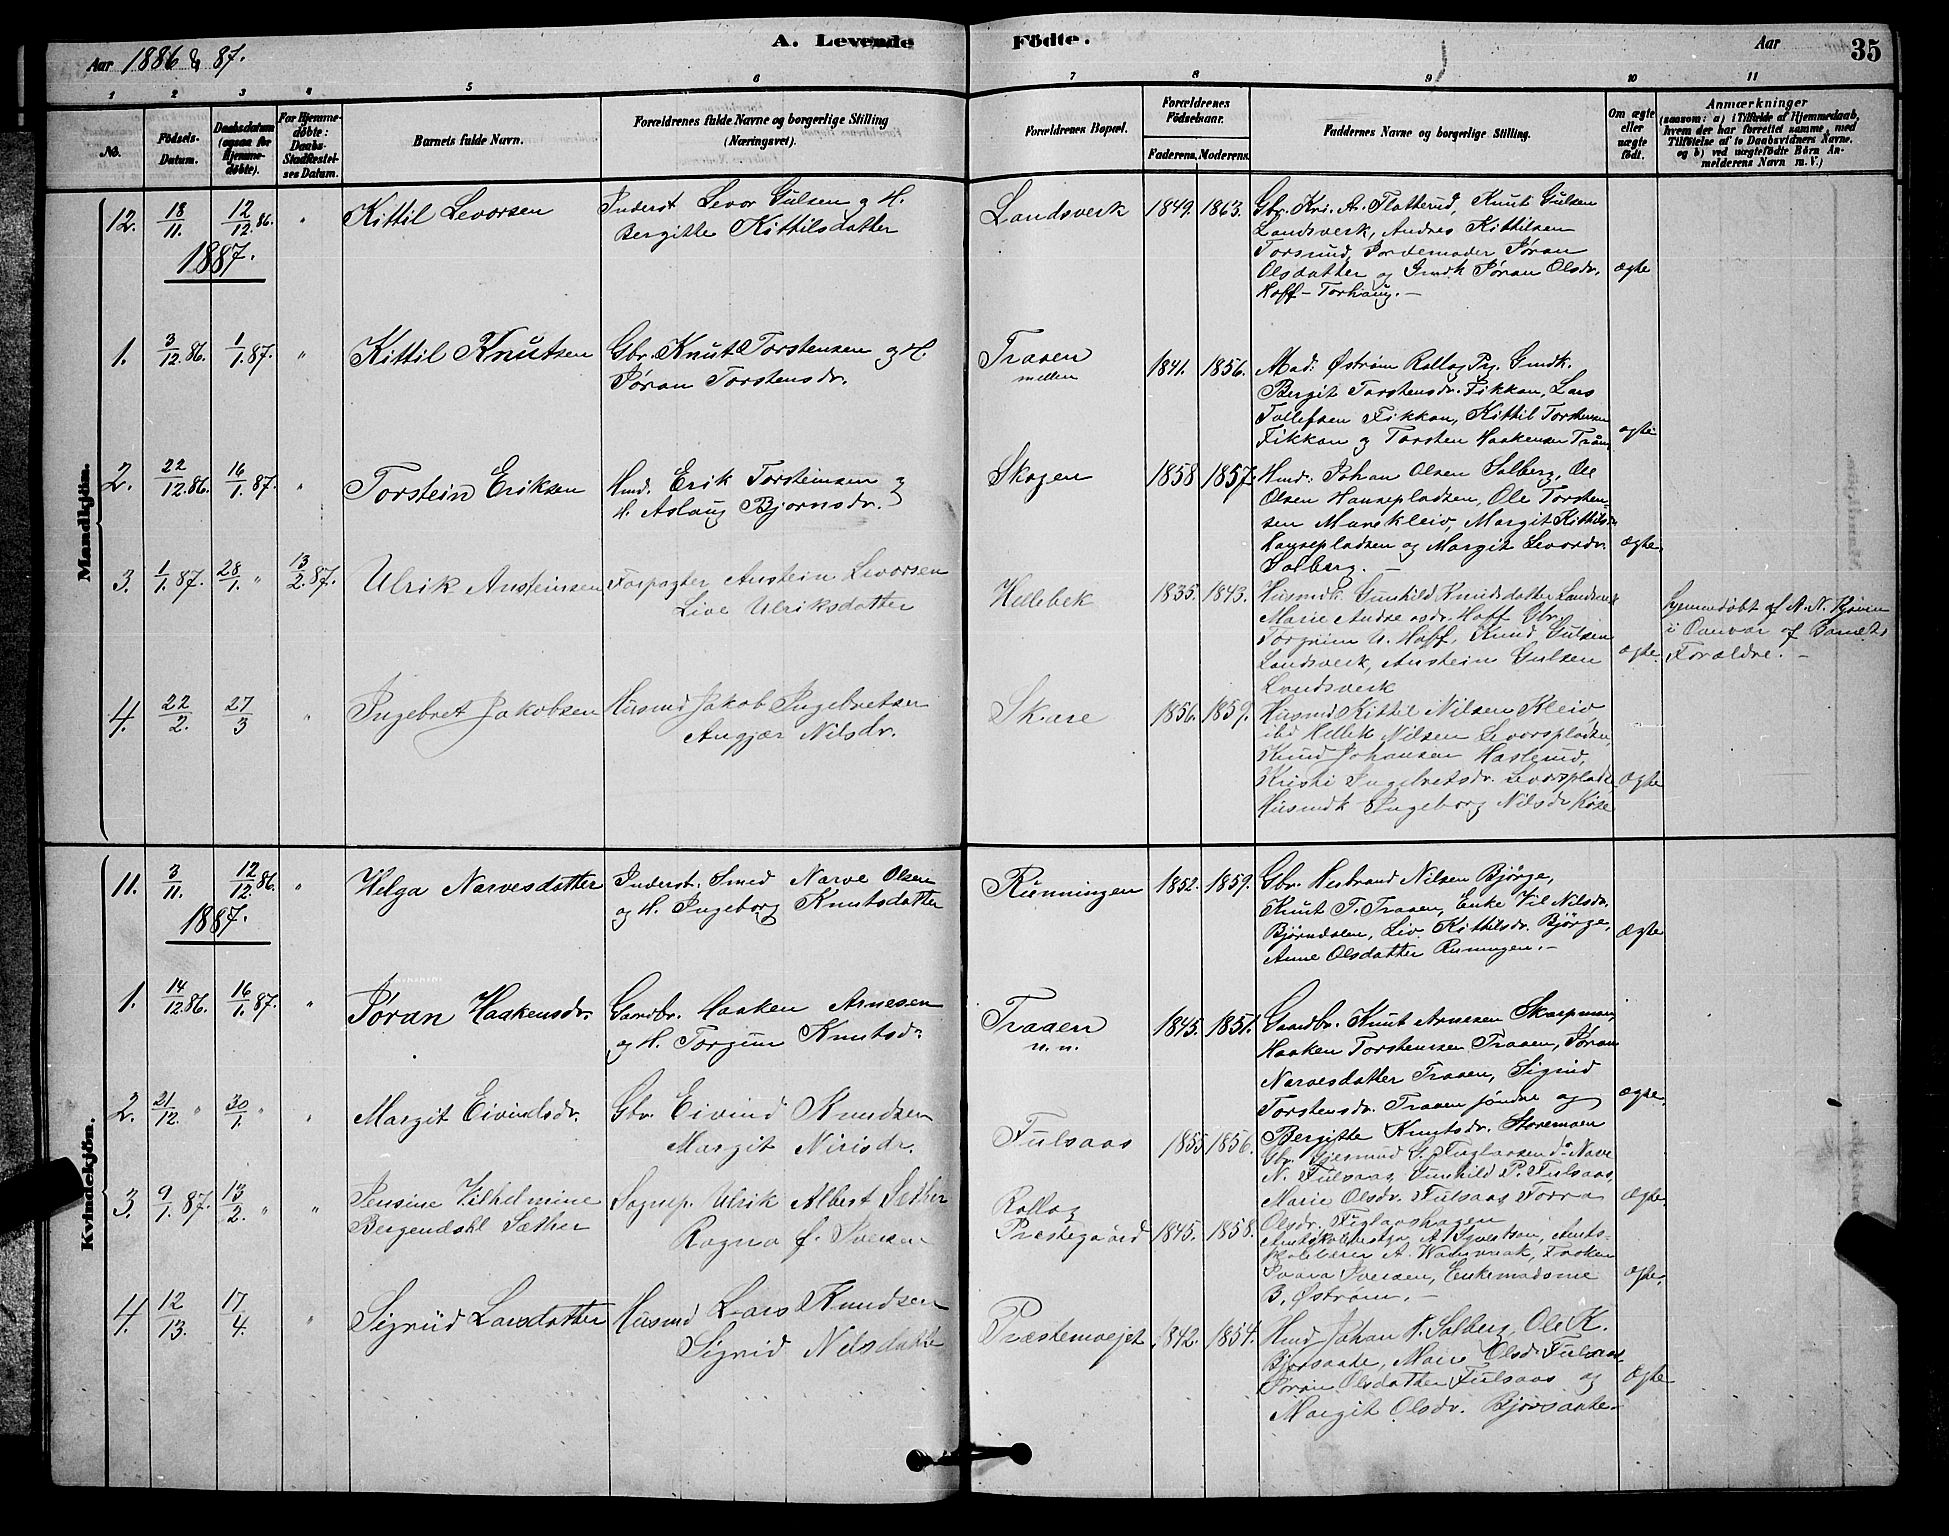 Aar 1886 & 87.
A. Levende Födte.
Aar
35
1 2 3 4 5 6 7 8 9 10 11
No.
Födsels-
Datum.
Daabsdatum
(ogsaa for
Hjemme-
døbte).
For Hjemme-
døbte:
Daabs-
Stadfæstel-
ses Datum.
Barnets fulde Navn.
Forældrenes fulde Navne og borgerlige Stilling
(Næringsvei).
Forældrenes Bopæl.
Forældrenes
Födselsaar.
Faderens. Moderens.
Faddernes Navne og borgerlige Stilling.
Om ægte
eller
uægte
født.
Anmærkninger
(saasom: a) i Tilfælde af Hjemmedaab,
hvem der har forrettet samme, med
Tilføielse af to Daabsvidners Navne,
og b) ved uægtefödte Börn An-
melderens Navn m. V.)
Mandkjön.
12. 18/11. 12/12 86. " Kittil Levorsen
Inderst Levor Gulsen og H.
Bergitte Kittilsdatter
Landsverk 1849. 1863.
Gbr. Kri. A. Flatterud, Knut Gulsen
Landsverk, Andres Kittilsen
Torsrud, Jordemoder Jøran
Olsdatter og Gmdk Jøran Olsdr.
Hoff-Torhaug.-
ægte
1887.
1. 3/12 86. 1/1 87. " Kittil Knutsen
Gbr. Knut Torstensen og H.
Jøran Torstensdr.
Traaen
mellem
1841. 1856.
Mad: Østrøm Rollag Pg. Gmdk.
Bergit Torstensdr. Fikkan, Lars
Tollefsen Fikkan, Kittil Torstensen
Fikkan og Torsten Haakensen Tråen
ægte
2. 22/12 86. 16/1 87. " Torstein Eriksen
Hmd. Erik Torsteinsen og
H. Aslaug Bjornsdr.
Skogen 1858 1857.
Hmd: Johan Olsen Solberg, Ole
Olsen Hansepladsen, Ole Torsten-
sen Manekleiv, Margit Kittilsdr
Hansepladsen og Margit Levordr.
Solberg. -
Ægte.
3. 1/1 87. 28/1 " 13/2 87. Ulrik Austeinsen
Forpagter Austein Levorsen
Live Ulriksdatter
Hellebek 1835. 1843.
Husmdk. Gunhild Knudsdatter Landsverk
Marie Andreasdr. Hoff Gbr.
Torgrim U. Hoff, Knud Gulsen
Landsverk, Austein Gulsen
Landsverk
ægte.
hjemmedøbt af A. N. Kjøven
i Danvar af Barnets
Forældre. -
4. 22/2. 27/3 " Ingebret Jakobsen
Husmd Jakob Ingebretsen
Angjær Nilsdr.
Skare 1856. 1859.
Husmd Kittil Nilsen Kleiv,
ibd Hellik Nilsen Levorspladsen,
Knud Johansen Haslerud,
Kristi Ingebretsdr. Levorspladsen
Husmdk Ingeborg Nilsdr Køse
Ægte
Kvindekjön.
11. 3/11. 12/12 86. " Helga Narvesdatter
Inderst. Smed Narve Olsen
og H. Ingeborg Knutsdatter
Runningen 1852. 1859.
Gbr. Herbrand Nilsen Bjørge,
Knut T. Traaen, Enke Vil Nilsdr.
Bjørndalen, Liv Kittilsdr. Bjørge,
Anne Olsdatter Runingen.-
Ægte
1887.
1. 14/12 86. 16/1 87. " Jøran Haakensdr.
Gaardbr. Haaken Arnesen
og H. Torgun Knutsdr.
Traaen
n. n.
1845. 1851.
Gaardbr. Knut Arnesen Skarpmoen
Haaken Torstensen Traaen, Jøran
Narvesdatter Traaen, Sigrid
Torstensdr. Traaen søndre og
Bergitte Knutsdr. Storemoen
Ægte.
2. 21/12. " 30/1 " " Margit Eivindsdr.
Gbr. Eivind Knudsen
Margit Nirisdr.
Fulsaas 1855 1856.
N. Fulsaas, Gunhild P. Fulsaas,
Marie Olsdr. Fulsaas Torra
Ægte.
3. 9/1 87. 13/2 " " Jensine Vilhelmine
Bergendahl Sæther
Sognep. Ulrik Albert Sæther
Ragna f. Iversen
Rollag
Præstegaard 1845. 1858.
Iversen, Enkemadame
B. Østrøm. -
Ægte.
4. 12/13 17/4. " Sigrid Larsdatter
Husmd Lars Knudsen
Sigrid Nilsdatter
Præstemoejet 1842. 1854.
Hmd Johan N. Solberg, Ole K.
Bjørsaate, Mari Olsdr Fulsaas,
Jøran Olsdatter Fulsaas og
Margit Olsdr. Bjørsaate.
Ægte